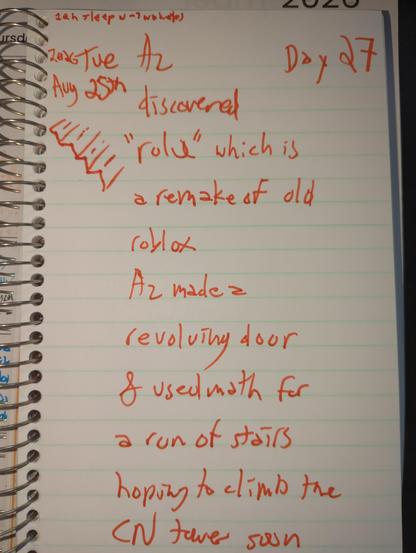 2026
Day 27
2026 Tue Az
Aug 25th discovered
"rolu" which is
a remake of old
roblox
Az made a
revolving door
& used math for
a run of stairs
hoping to climb the
CN tower soon